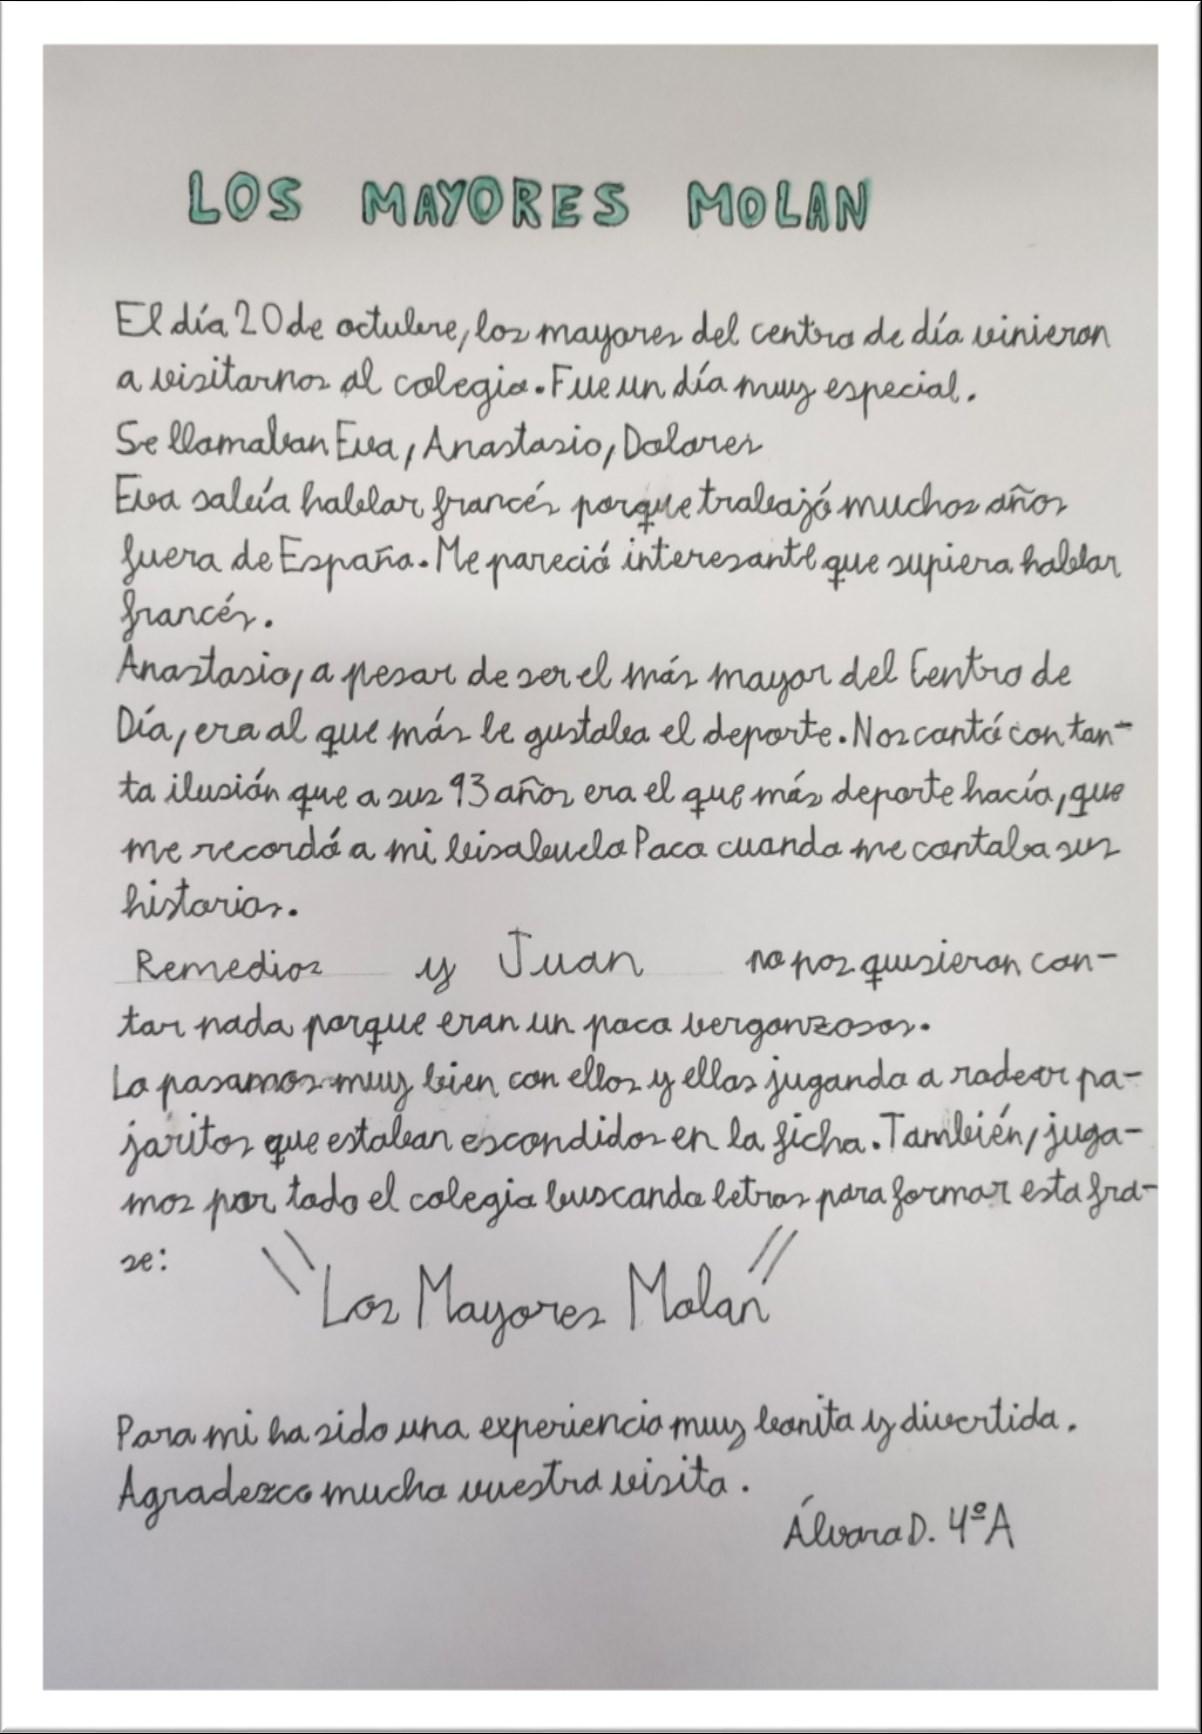 LOS MAYORES MOLAN
El día 20 de octubre, los mayores del centro de día vinieron
a visitarnos al colegio. Fue un día muy especial.
Se llamaban Eva, Anastasio, Dolores
Eva sabía hablar francés porque trabajó muchos años
fuera de España. Me pareció interesante que supiera hablar
francés.
Anastasio, a pesar de ser el más mayor del Centro de
Día, era al que más le gustaba el deporte. Nos contó con tan-
ta ilusión que a sus 93 años era el que más deporte hacía, que
me recordó a mi bisabuelo Paco cuando me contaba sus
historias.
Remedios y Juan no nos quisieron con-
tar nada porque eran un poco vergonzosos.
Lo pasamos muy bien con ellos y ellas jugando a rodear pa-
jaritos que estaban escondidos en la ficha. También, juga-
mos por todo el colegio buscando letras para formar esta fra-
se:
"Los Mayores Molan"
Para mi ha sido una experiencia muy bonita y divertida.
Agradezco mucho vuestra visita.
Álvaro D. 4ºA